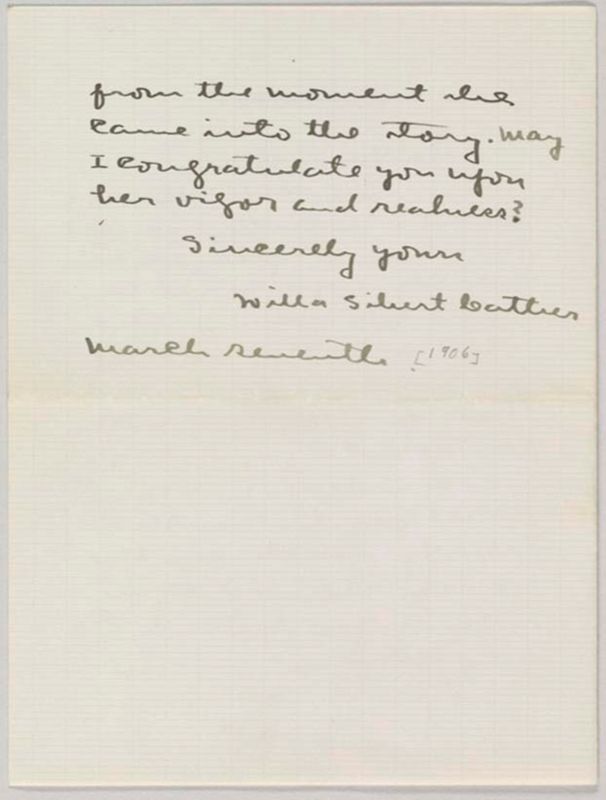 from the moment she
came into the story. May
I congratulate you upon
her vigor and realness?
Sincerely yours
Willa Sibert Cather
March seventh [1906]